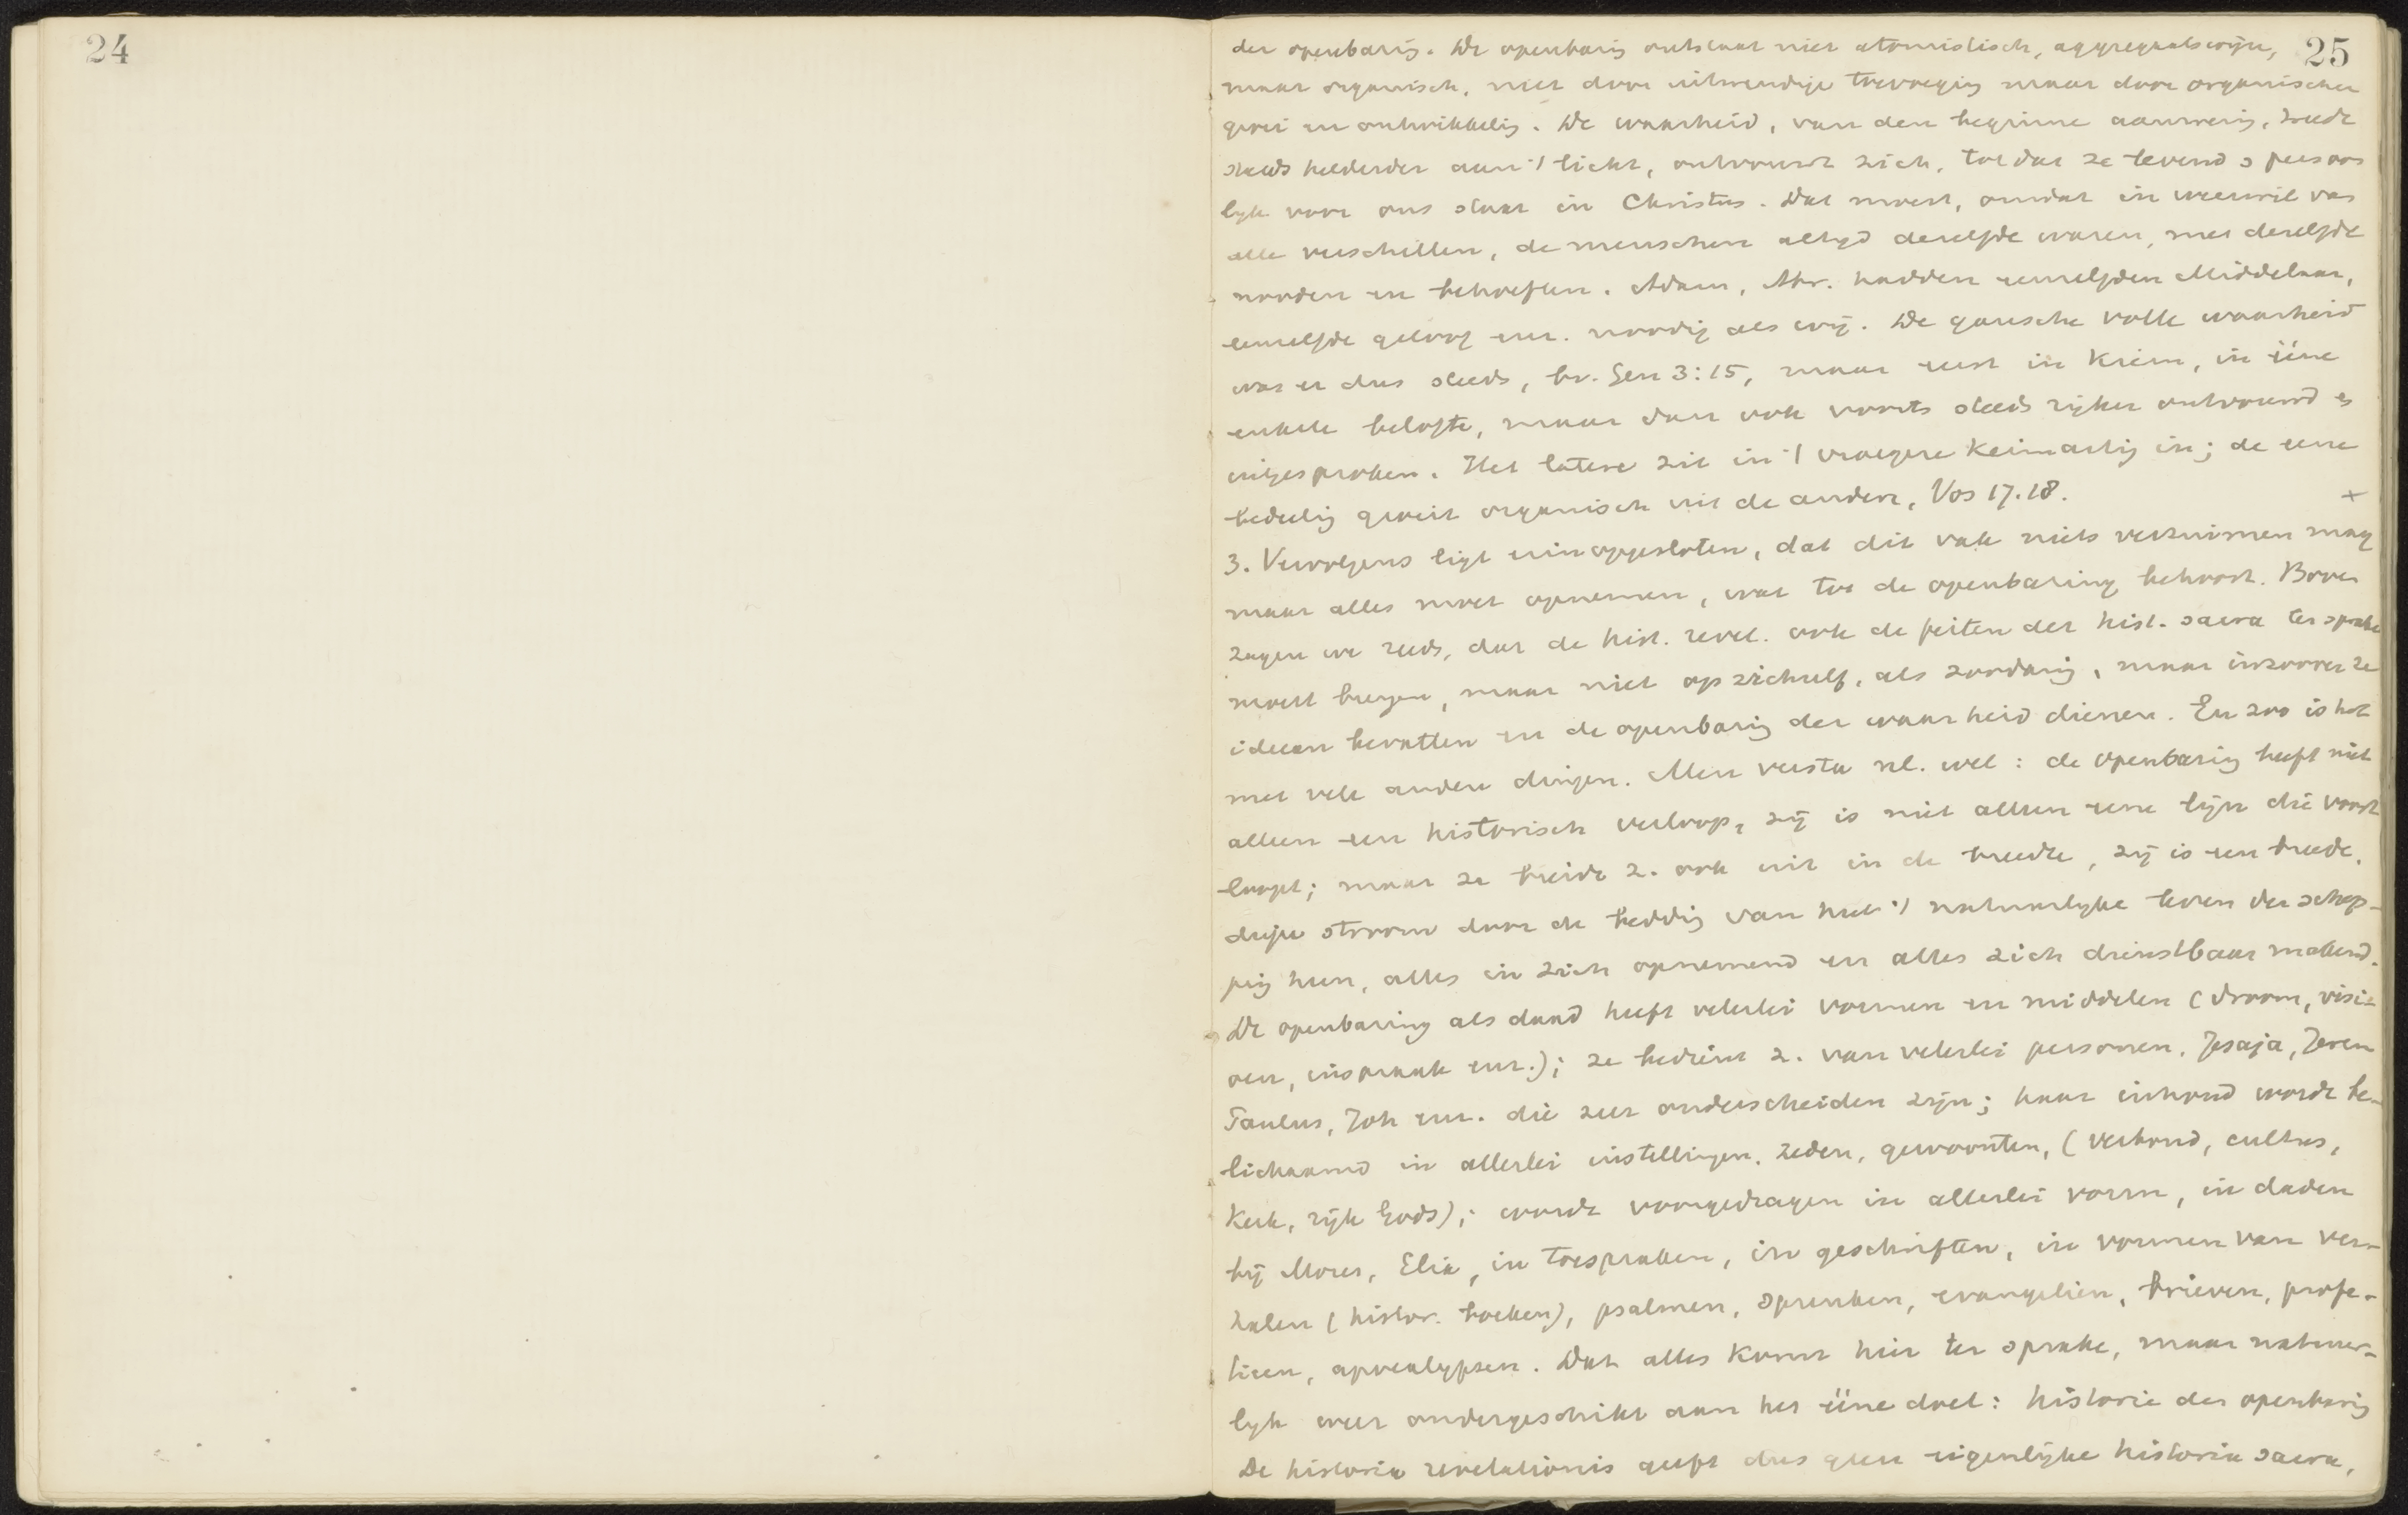 24
25
der openbarig. De openbarig ontstaat niet atomistisch, aggregaatswijze,
maar organisch, niet door uitwendige toevoeging maar door organischen
groei en ontwikkelig. De waarheid, van den beginne aanwezig, treedt
steeds helderder aan 't licht, ontvouwt zich, totdat ze levend & persoon
lijk voor ons staat in Christus. Dat moest, omdat in weerwil van
alle verschillen, de menschen altijd dezelfde waren, met dezelfde
nooden en behoeften. Adam, Abr. hadden eenzelfden Middelaar,
eenzelfde geloof enz. noodig als wij. De gansche volle waarheid
was er dus steeds, bv. Gen 3:15, maar eerst in Kiem, in ééne
enkele belofte, maar dan ook voorts steeds rijker ontvouwd &
uitgesproken. Het latere zit in 't vroegere Keimartig in; de eene
bedeelig groeit organisch uit de andere, Vos 17.18. +
3. Vervolgens ligt erin opgesloten, dat dit vak niets verzuimen mag
maar alles moet opnemen, wat tot de openbaring behoort. Boven
zagen we reeds, dat de hist. revel. ook de feiten der hist. sacra ter sprake
moest brengen, maar niet op zichzelf, als zoodanig, maar inzoover ze
ideeen bevatten en de openbarig der waarheid dienen. En zoo is het
met vele andere dingen. Men versta nl. wel: de openbarig heeft niet
alleen een historisch verloop, zij is niet alleen eene lijn die voort
loopt; maar ze breidt z. ook uit in de breedte, zij is een breede,
diepe stroom door de beddig van heel 't natuurlijke leven der schep-
pig heen, alles in zich opnemend en alles zich dienstbaar makend.
De openbaring als daad heeft velerlei vormen en middelen (droom, visi-
oen, inspraak enz.); ze bedient z. van velerlei personen, Jesaja, Jerem
Paulus, Joh enz. die zeer onderscheiden zijn; haar inhoud wordt be-
lichaamd in allerlei instellingen, zeden, gewoonten, (verbond, cultus,
Kerk, rijk Gods); wordt voorgedragen in allerlei vorm, in daden
bij Mozes, Elia, in toespraken, in geschriften, in vormen van ver-
halen (histor. boeken), psalmen, spreuken, evangelien, brieven, profe-
tieen, apocalypsen. Dat alles komt hier ter sprake, maar natuur-
lijk weer ondergeschikt aan het ééne doel: historie der openbarig
De historia revelationis geeft dus geen eigenlijke historia sacra,